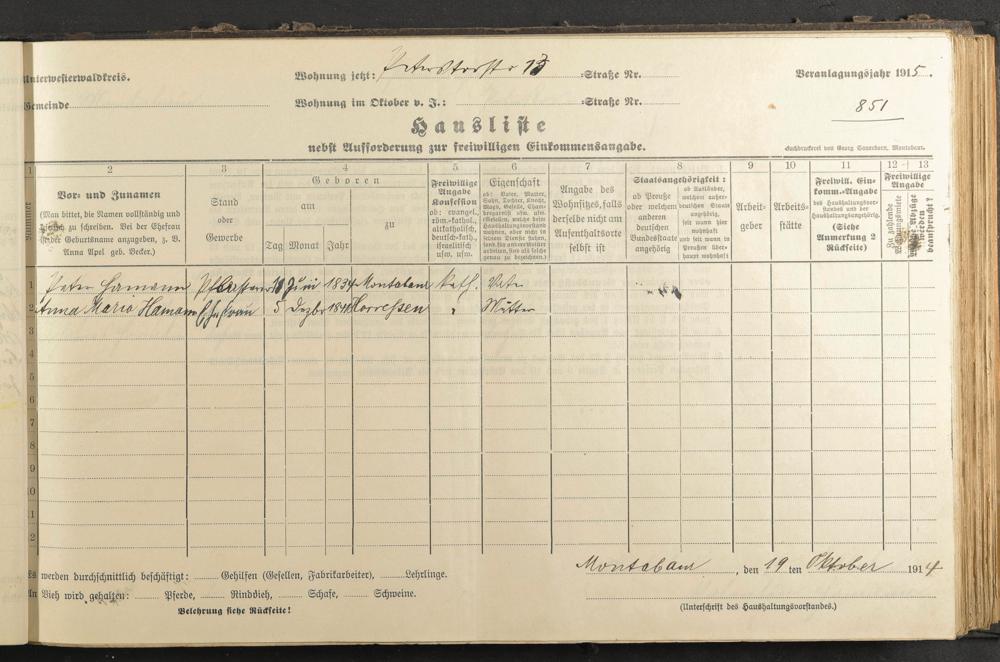 Unterwesterwaldkreis. Wohnung jetzt: Peterstorstr 13 -Straße Nr. Veranlagungsjahr 1915.
Gemeinde Wohnung im Oktober v. J.: -Straße Nr. 851
Hausliste
nebst Aufforderung zur freiwilligen Einkommensangabe.
Buchdruckerei von Georg Sauerborn, Montabaur.
1 2 3 4 5 6 7 8 9 10 11 12 13
Nummer
Vor- und Zunamen
(Man bittet, die Namen vollständig und
zu schreiben. Bei der Ehefrau
Geburtsname anzugeben, z. B.
Anna Apel geb. Becker.)
Stand
oder
Gewerbe
Geboren
am
Tag Monat Jahr
zu
Freiwillige
Angabe
Konfession
ob: evangel.,
röm.-kathol.,
altkatholisch,
deutsch-kath.,
israelitisch
usw. usw.
Eigenschaft
ob: Vater, Mutter,
Sohn, Tochter, Knecht,
Magd, Geselle, Cham-
bregarnist usw. usw.
Angabe des
Wohnsitzes, falls
derselbe nicht am
Aufenthaltsorte
selbst ist
Staatsangehörigkeit:
ob Preuße
oder welchem
anderen
deutschen
Bundesstaate
angehörig
ob Ausländer,
welchem außer-
deutschen Staat
angehörig,
seit wann hier
wohnhaft
und seit wann in
Preußen über-
haupt wohnhaft
Arbeit-
geber
Arbeits-
stätte
Freiwill. Ein-
komm.-Angabe
des Haushaltungsvor-
standes und der
Haushaltungsangehörig.
(Siehe
Anmerkung 2
Rückseite)
Freiwillige
Angabe
Zu zahlende
Wohnungsmiete
Abzüge
werden
beansprucht?
1 Peter Hamann 10 Juni 1834 Montabaur kath. Vater
2 Anna Maria Hamann Ehefrau 5 Dezbr Horressen " Mutter
3
4
5
6
7
8
9
10
11
12
Es werden durchschnittlich beschäftigt: Gehilfen (Gesellen, Fabrikarbeiter), Lehrlinge.
An Vieh wird gehalten: Pferde, Rindvieh, Schafe, Schweine.
Belehrung siehe Rückseite!
Montabaur, den 19 ten Oktober 1914
(Unterschrift des Haushaltungsvorstandes.)